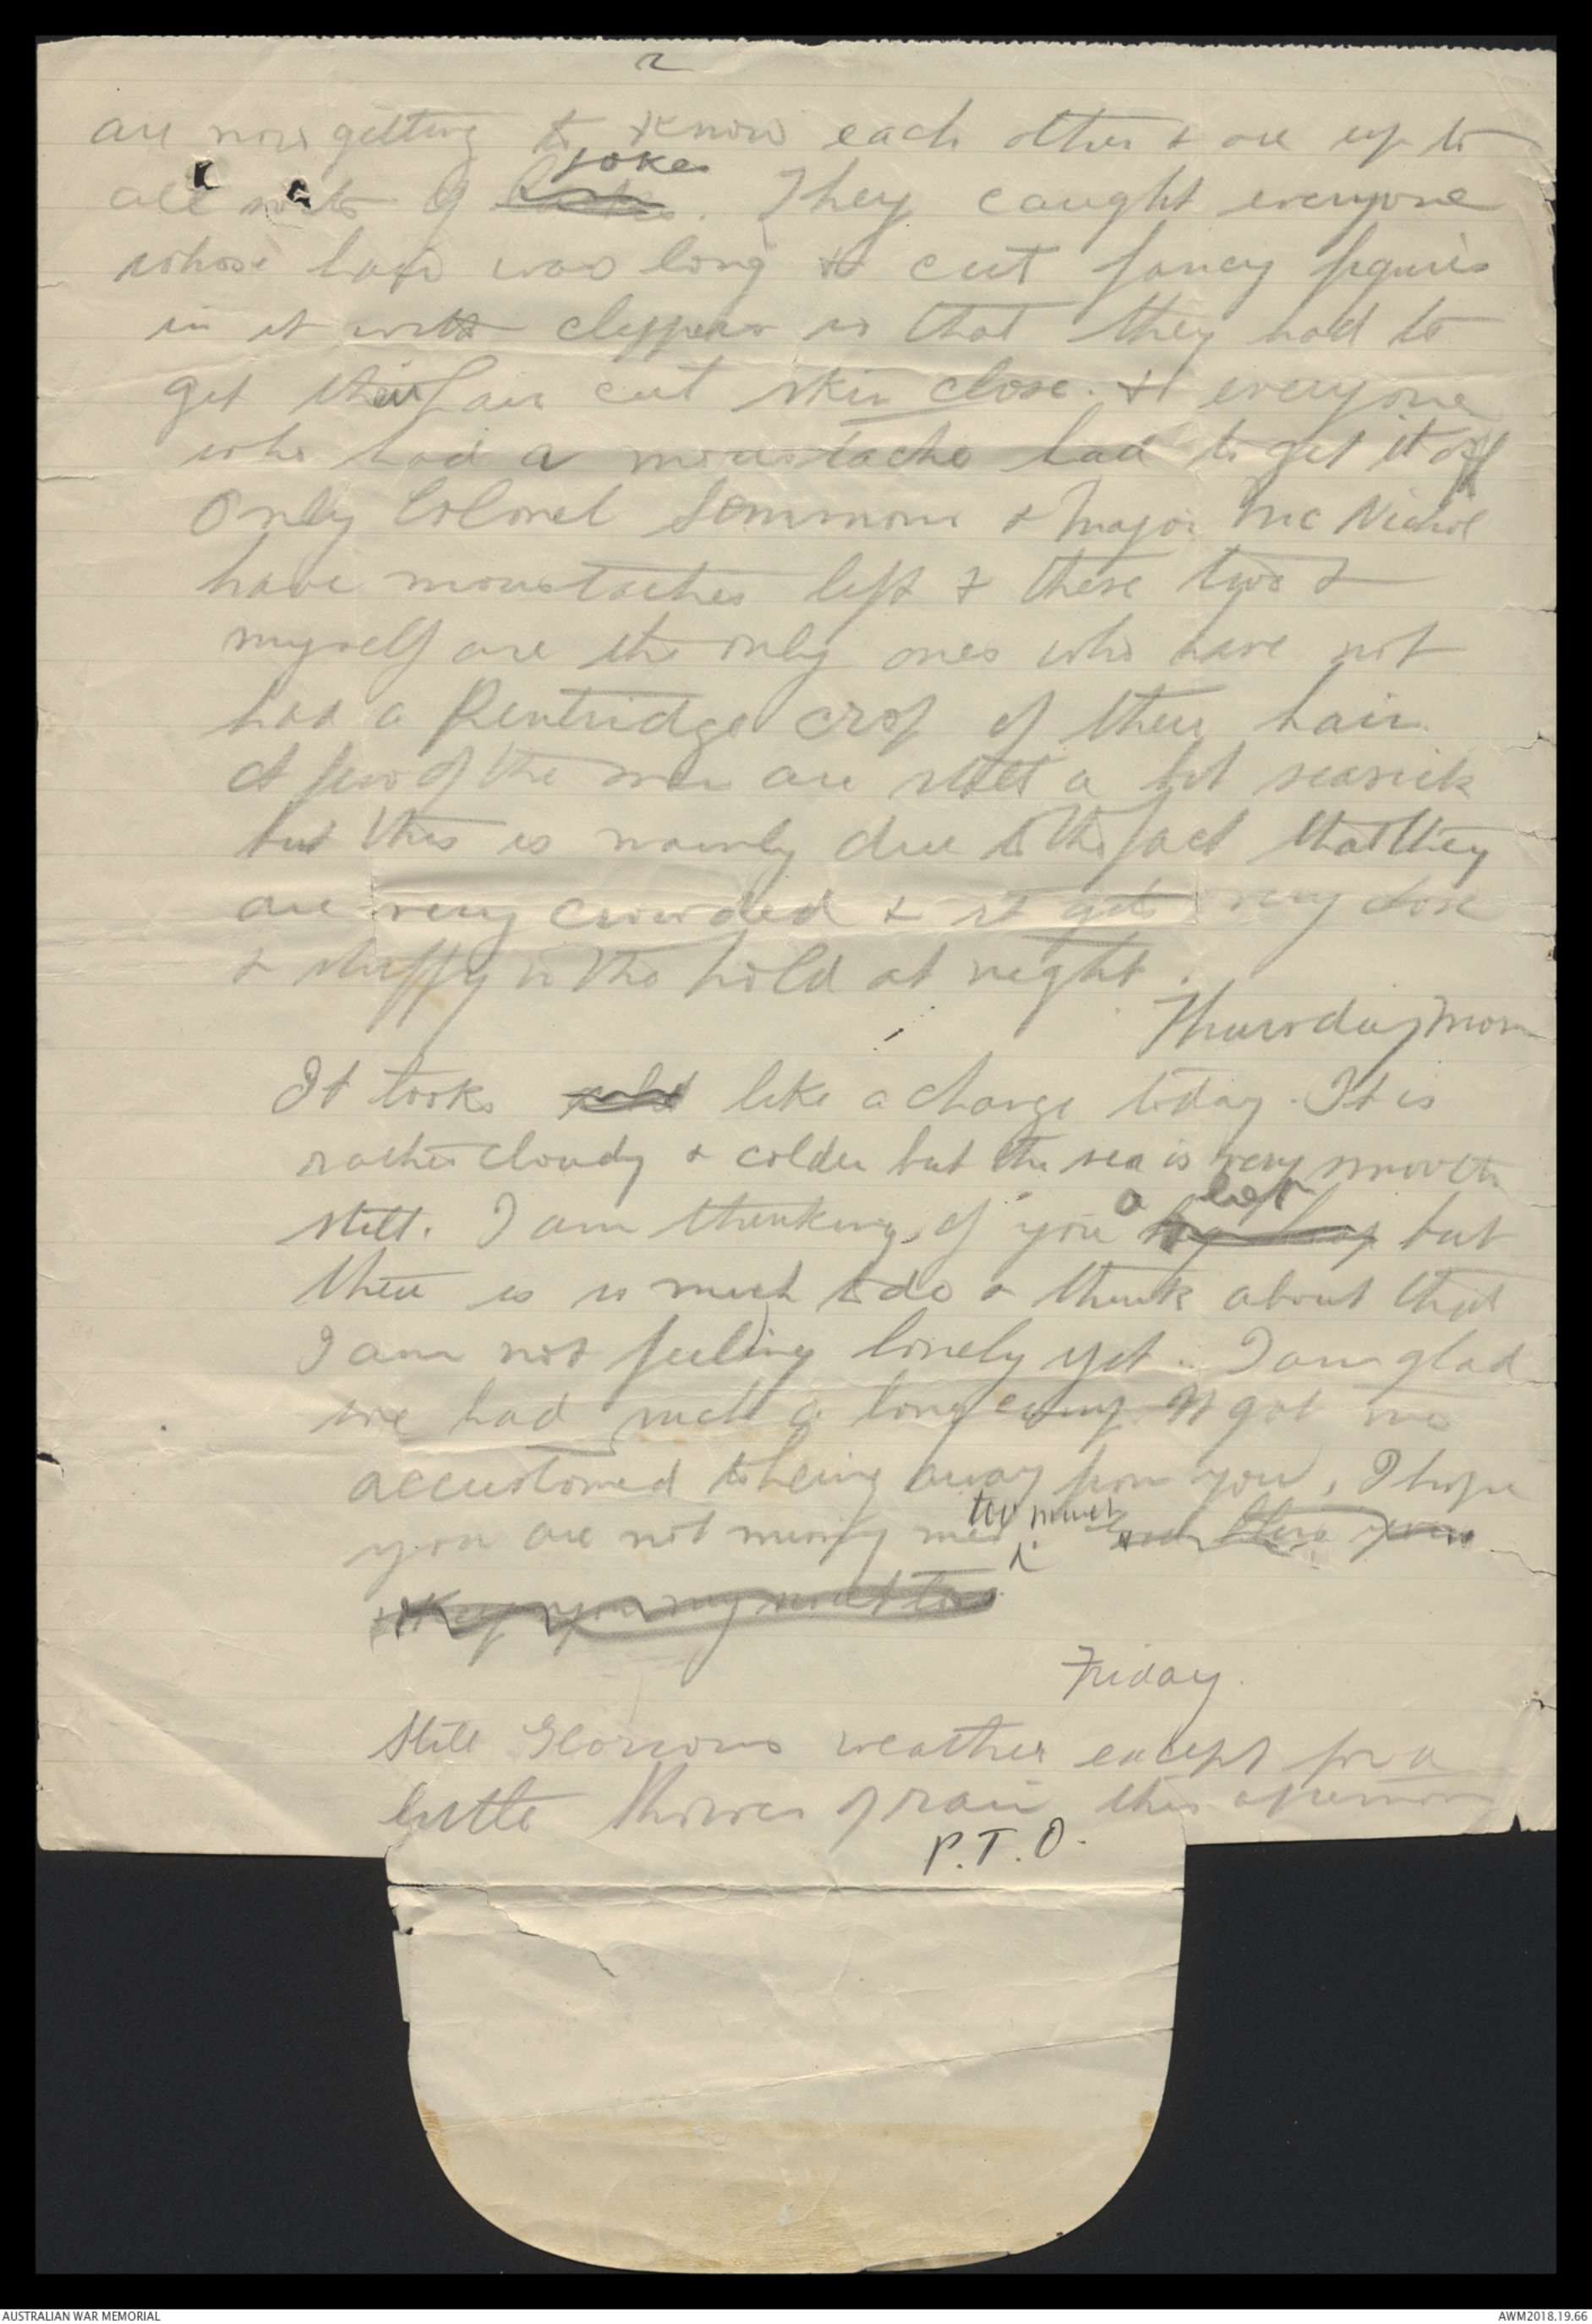 2
are now getting to know each other & are up to
jokes
all sorts of . They caught everyone
whose hair was long & cut fancy figures
in it with clippers so that they had to
get their hair cut skin close. & everyone
who had a moustache had to get it off
Only Colonel Semmens & Major McNichol
have moustaches left & these two &
myself are the only ones who have not
had a Pentridge crop of their hair.
A few of the men are still a bit seasick
but this is mainly due to the fact that they
are very crowded & it gets very close
& stuffy in the hold at night.
Thursday Morn
It looks like a change today. It is
rather cloudy & colder but the sea is very smooth
a lot
still. I am thinking of you but
there is so much to do & think about that
I am not feeling lonely yet. I am glad
we had such a long camp. It got me
accustomed to being away from you, I hope
too much
you are not missing me
Friday.
Still Glorious weather except for a
little shower of rain this afternoon
P.T.O.
AUSTRALIAN WAR MEMORIAL
AWM2018.19.66